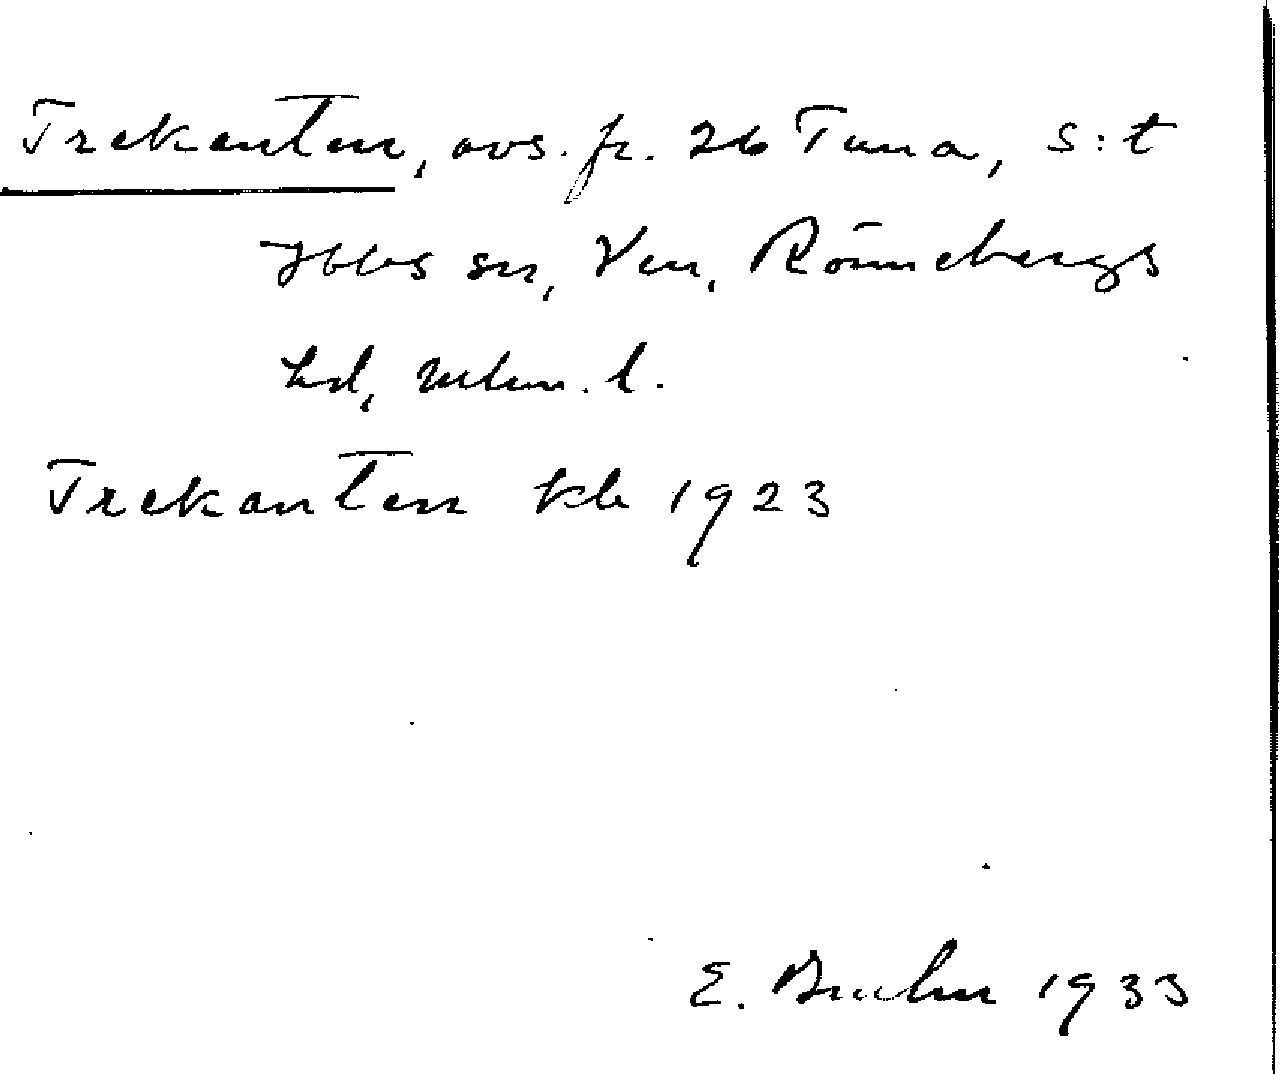 Trekanten, avs. fr. 26 Tuna, S:t
Ibbs sn, Ven, Rönnebergs
hd, Mlm. l.
Trekanten kb 1923
E. Bruhn 1933